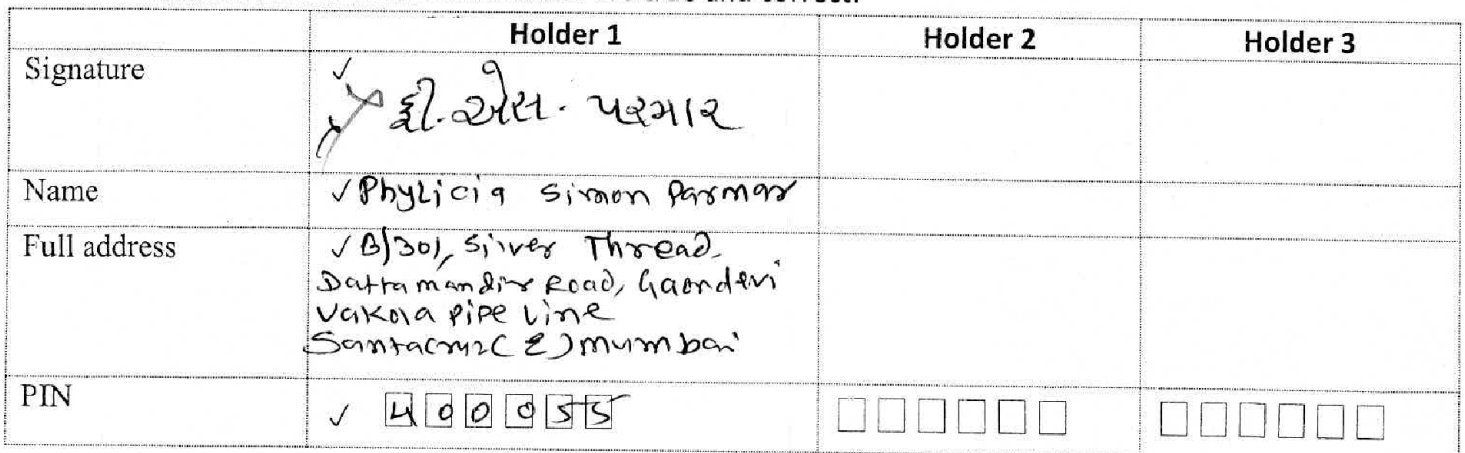 Holder 1 Holder 2 Holder 3
Signature ✓ ફી. એસ. પરમાર
Name ✓ Phylicia Simon Parmar
Full address ✓ B/301, Silver Thread,
Dattamandir Road, Gaondevi
Vakola Pipe Line
Santacruz (E) mumbai
PIN ✓ 400055